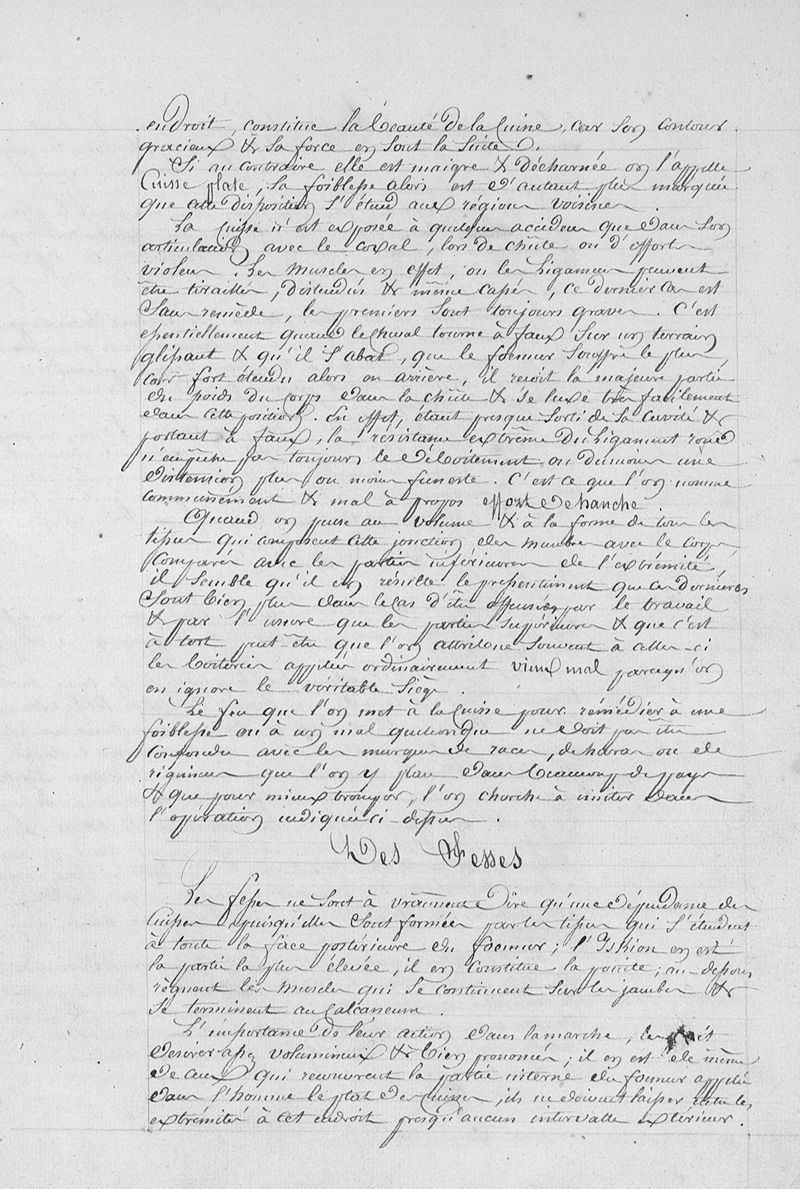 endroit, constitue la beauté de la Cuisse, car son contour
gracieux & sa force en sont la suite.
Si au contraire elle est maigre & décharnée on l'appelle
Cuisse plate, sa foiblesse alors est d'autant plus marquée
que cette disposition s'étend aux régions voisines.
La Cuisse n'est exposée à quelques accidens que dans son
articulation avec le coxal, lors de chûte ou d'efforts
violens. Les Muscles en effet, ou les Ligamens peuvent
être tiraillés, distendus & même cassés, ce dernier cas est
sans remède, les premiers sont toujours graves. C'est
essentiellement quand le cheval tourne à faux sur un terrain
glissant & qu'il s'abat, que le foemur souffre le plus,
car fort étendu alors en arrière, il reçoit la majeure partie
du poids du corps dans la chûte & se luxe très facilement
dans cette position. En effet, étant presque sorti de la cavité &
portant à faux, la résistance extrême du Ligament rond
n'empêche pas toujours le déboitement ou du moins une
distension plus ou moins funeste. C'est ce que l'on nomme
communément & mal à propos effort de hanche.
Quand on pense au volume & à la forme de tous les
tissus qui composent cette jonction des membres avec le corps
comparés avec les parties inférieures de l'extrémité,
il semble qu'il en résulte le pressentiment que ces dernières
sont bien plus dans le cas d'être offensées par le travail
& par l'usure que les parties supérieures & que c'est
à tort peut être que l'on attribue souvent à celles-ci
les boiteries appelées ordinairement vieux mal parcequ'on
en ignore le véritable siège.
Le feu que l'on met à la Cuisse pour remédier à une
foiblesse ou à un mal quelconque ne doit pas être
confondu avec les marques de races, de haras ou de
que l'on y place dans beaucoup de pays
& que pour mieux tromper, l'on cherche à imiter dans
l'opération indiquée ci-dessus.
Des Fesses
Les fesses ne sont à vraiment dire qu'une dépendance des
cuisses puisqu'elles sont formées par les tissus qui s'étendent
à toute la face postérieure du foemur; l'Iskion en est
la partie la plus élevée, il en constitue la pointe; au-dessous
règnent les Muscles qui se continuent sur les jambes &
se terminent au Calcaneum.
L'importance de leur action dans la marche, les fait
desirer assez volumineux & bien prononcés; il en est de même
de ceux qui recouvrent la partie interne du foemur appelée
dans l'homme le plat des cuisses, ils ne doivent laisser entre les
extrémités à cet endroit presqu'aucun intervalle extérieur.